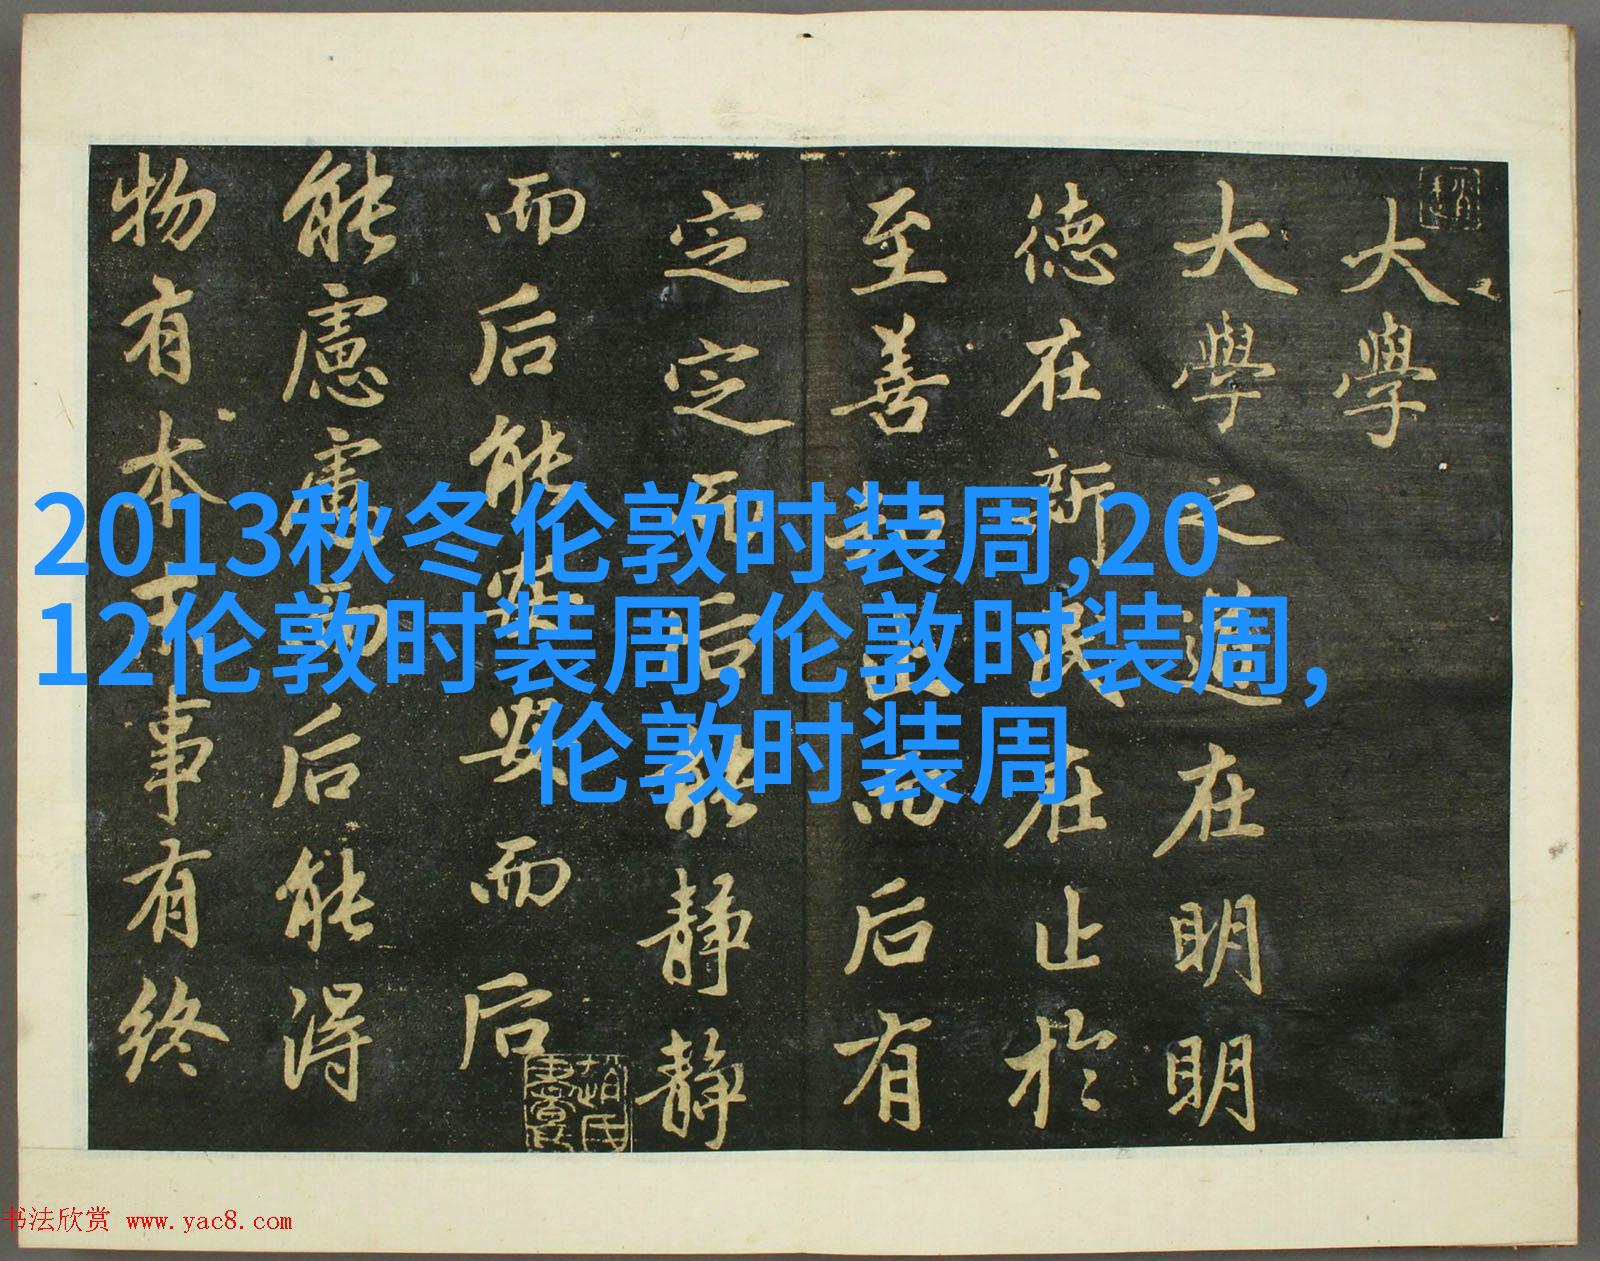 大學
大學之道在明明
德在新民在止於
至善知止而后有
定定而后能静静
而后能安安而后
能慮慮而后能得
物有本末事有終
2013秋冬伦敦时装周,20
12伦敦时装周,伦敦时装周,
伦敦时装周
书法欣赏 www.yac8.com